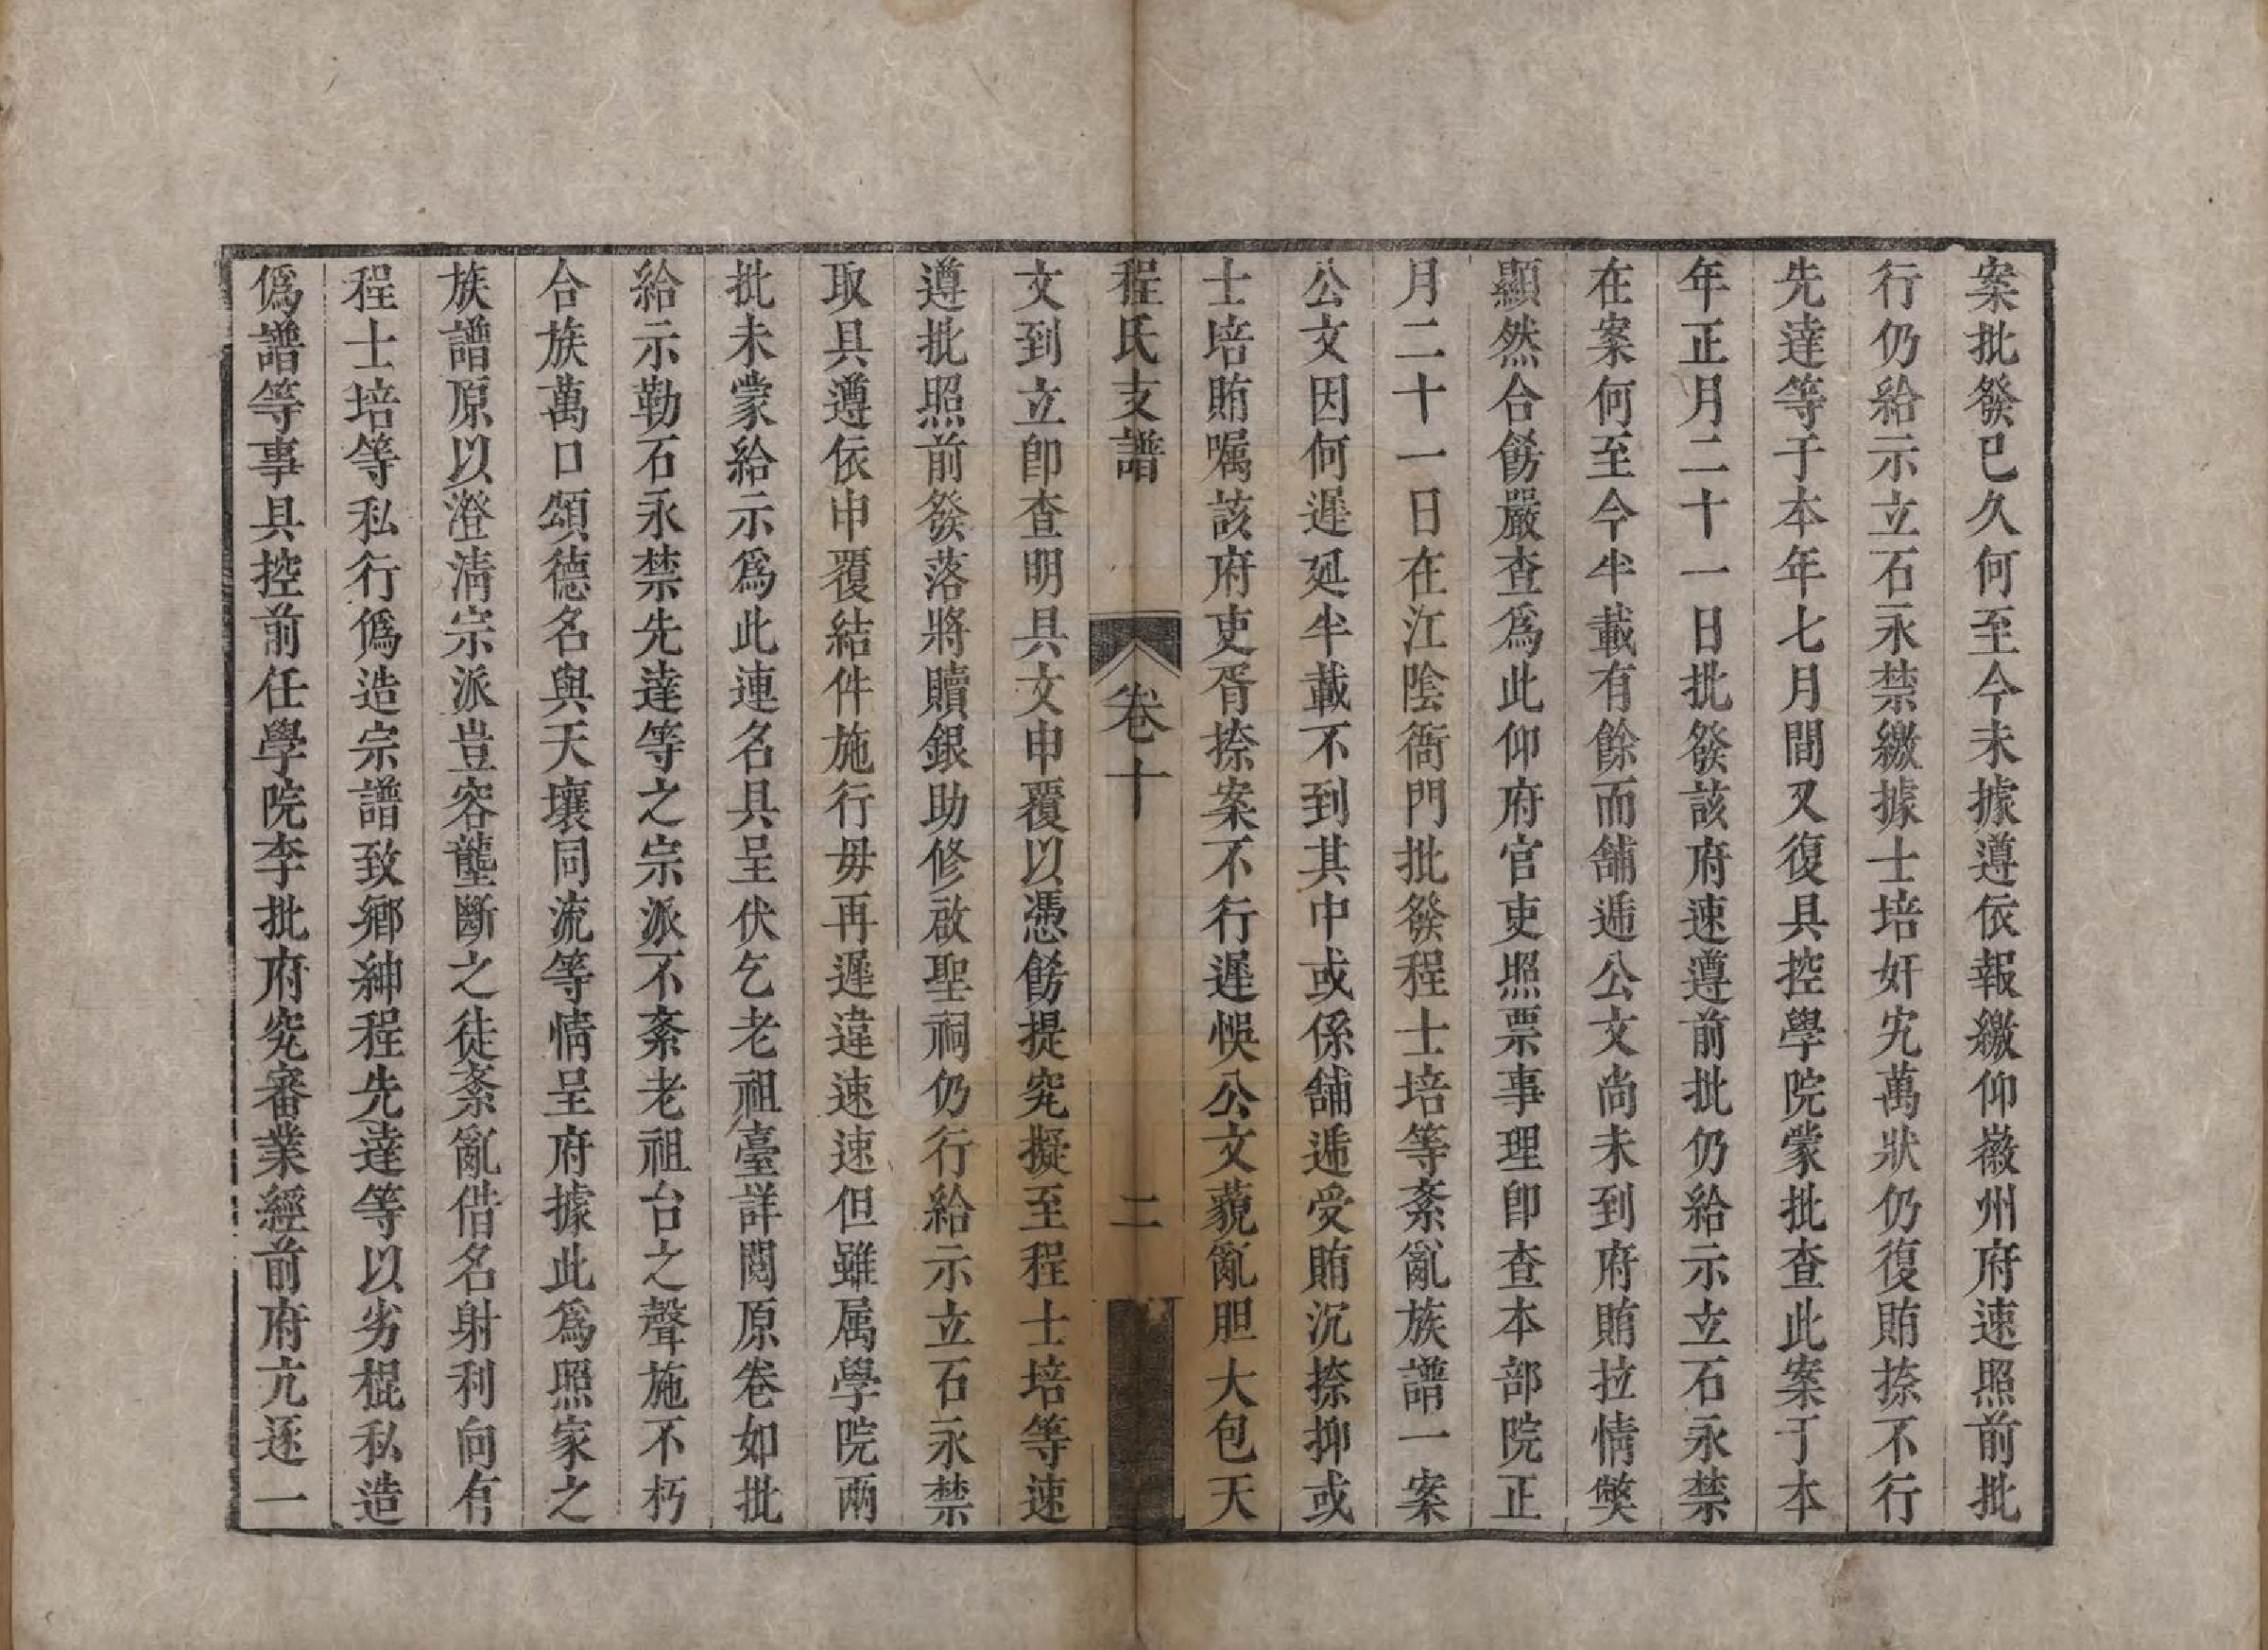 案批發已久何至今未據遵依報繳仰徽州府速照前批
行仍給示立石永禁繳據士培奸宄萬狀仍復賄捺不行
先達等于本年七月間又復具控學院蒙批查此案于本
年正月二十一日批發該府速遵前批仍給示立石永禁
在案何至今半載有餘而舖遞公文尚未到府賄拉情獘
顯然合餙嚴查爲此仰府官吏照票事理卽查本部院正
月二十一日在江陰衙門批發程士培等紊亂族譜一案
公文因何遲延半載不到其中或係舖遞受賄沉捺抑或
士培賄嘱該府吏胥捺案不行遲悞公文藐亂胆大包天
程氏支譜 卷十 二
文到立卽查明具文申覆以憑餙提究擬至程士培等速
遵批照前發落將贖銀助修啟聖祠仍行給示立石永禁
取具遵依申覆結件施行毋再遲違速速但雖属學院兩
批未蒙給示爲此連名具呈伏乞老祖臺詳閱原卷如批
給示勒石永禁先達等之宗派不紊老祖台之聲施不朽
合族萬口頌德名與天壤同流等情呈府據此爲照家之
族譜原以澄淸宗派豈容壟斷之徒紊亂借名射利向有
程士培等私行僞造宗譜致鄉紳程先達等以劣棍私造
僞譜等事具控前任學院李批府究審業經前府亢逐一